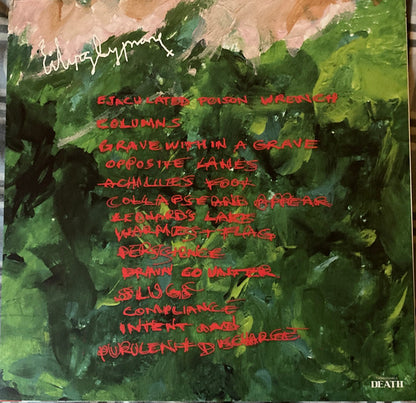 EJACULATED POISON WRENCH
COLUMNS
GRAVE WITHIN A GRAVE
OPPOSITE LANES
ACHILLIES FOOL
COLLAPSE AND APPEAR
LEONARD'S LAKE
WARMEST FLAG
PERSCIENCE
BRAIN GO WATER
SLUGS
COMPLIANCE
INTENT
PURULENT DISCHARGE
DEATH